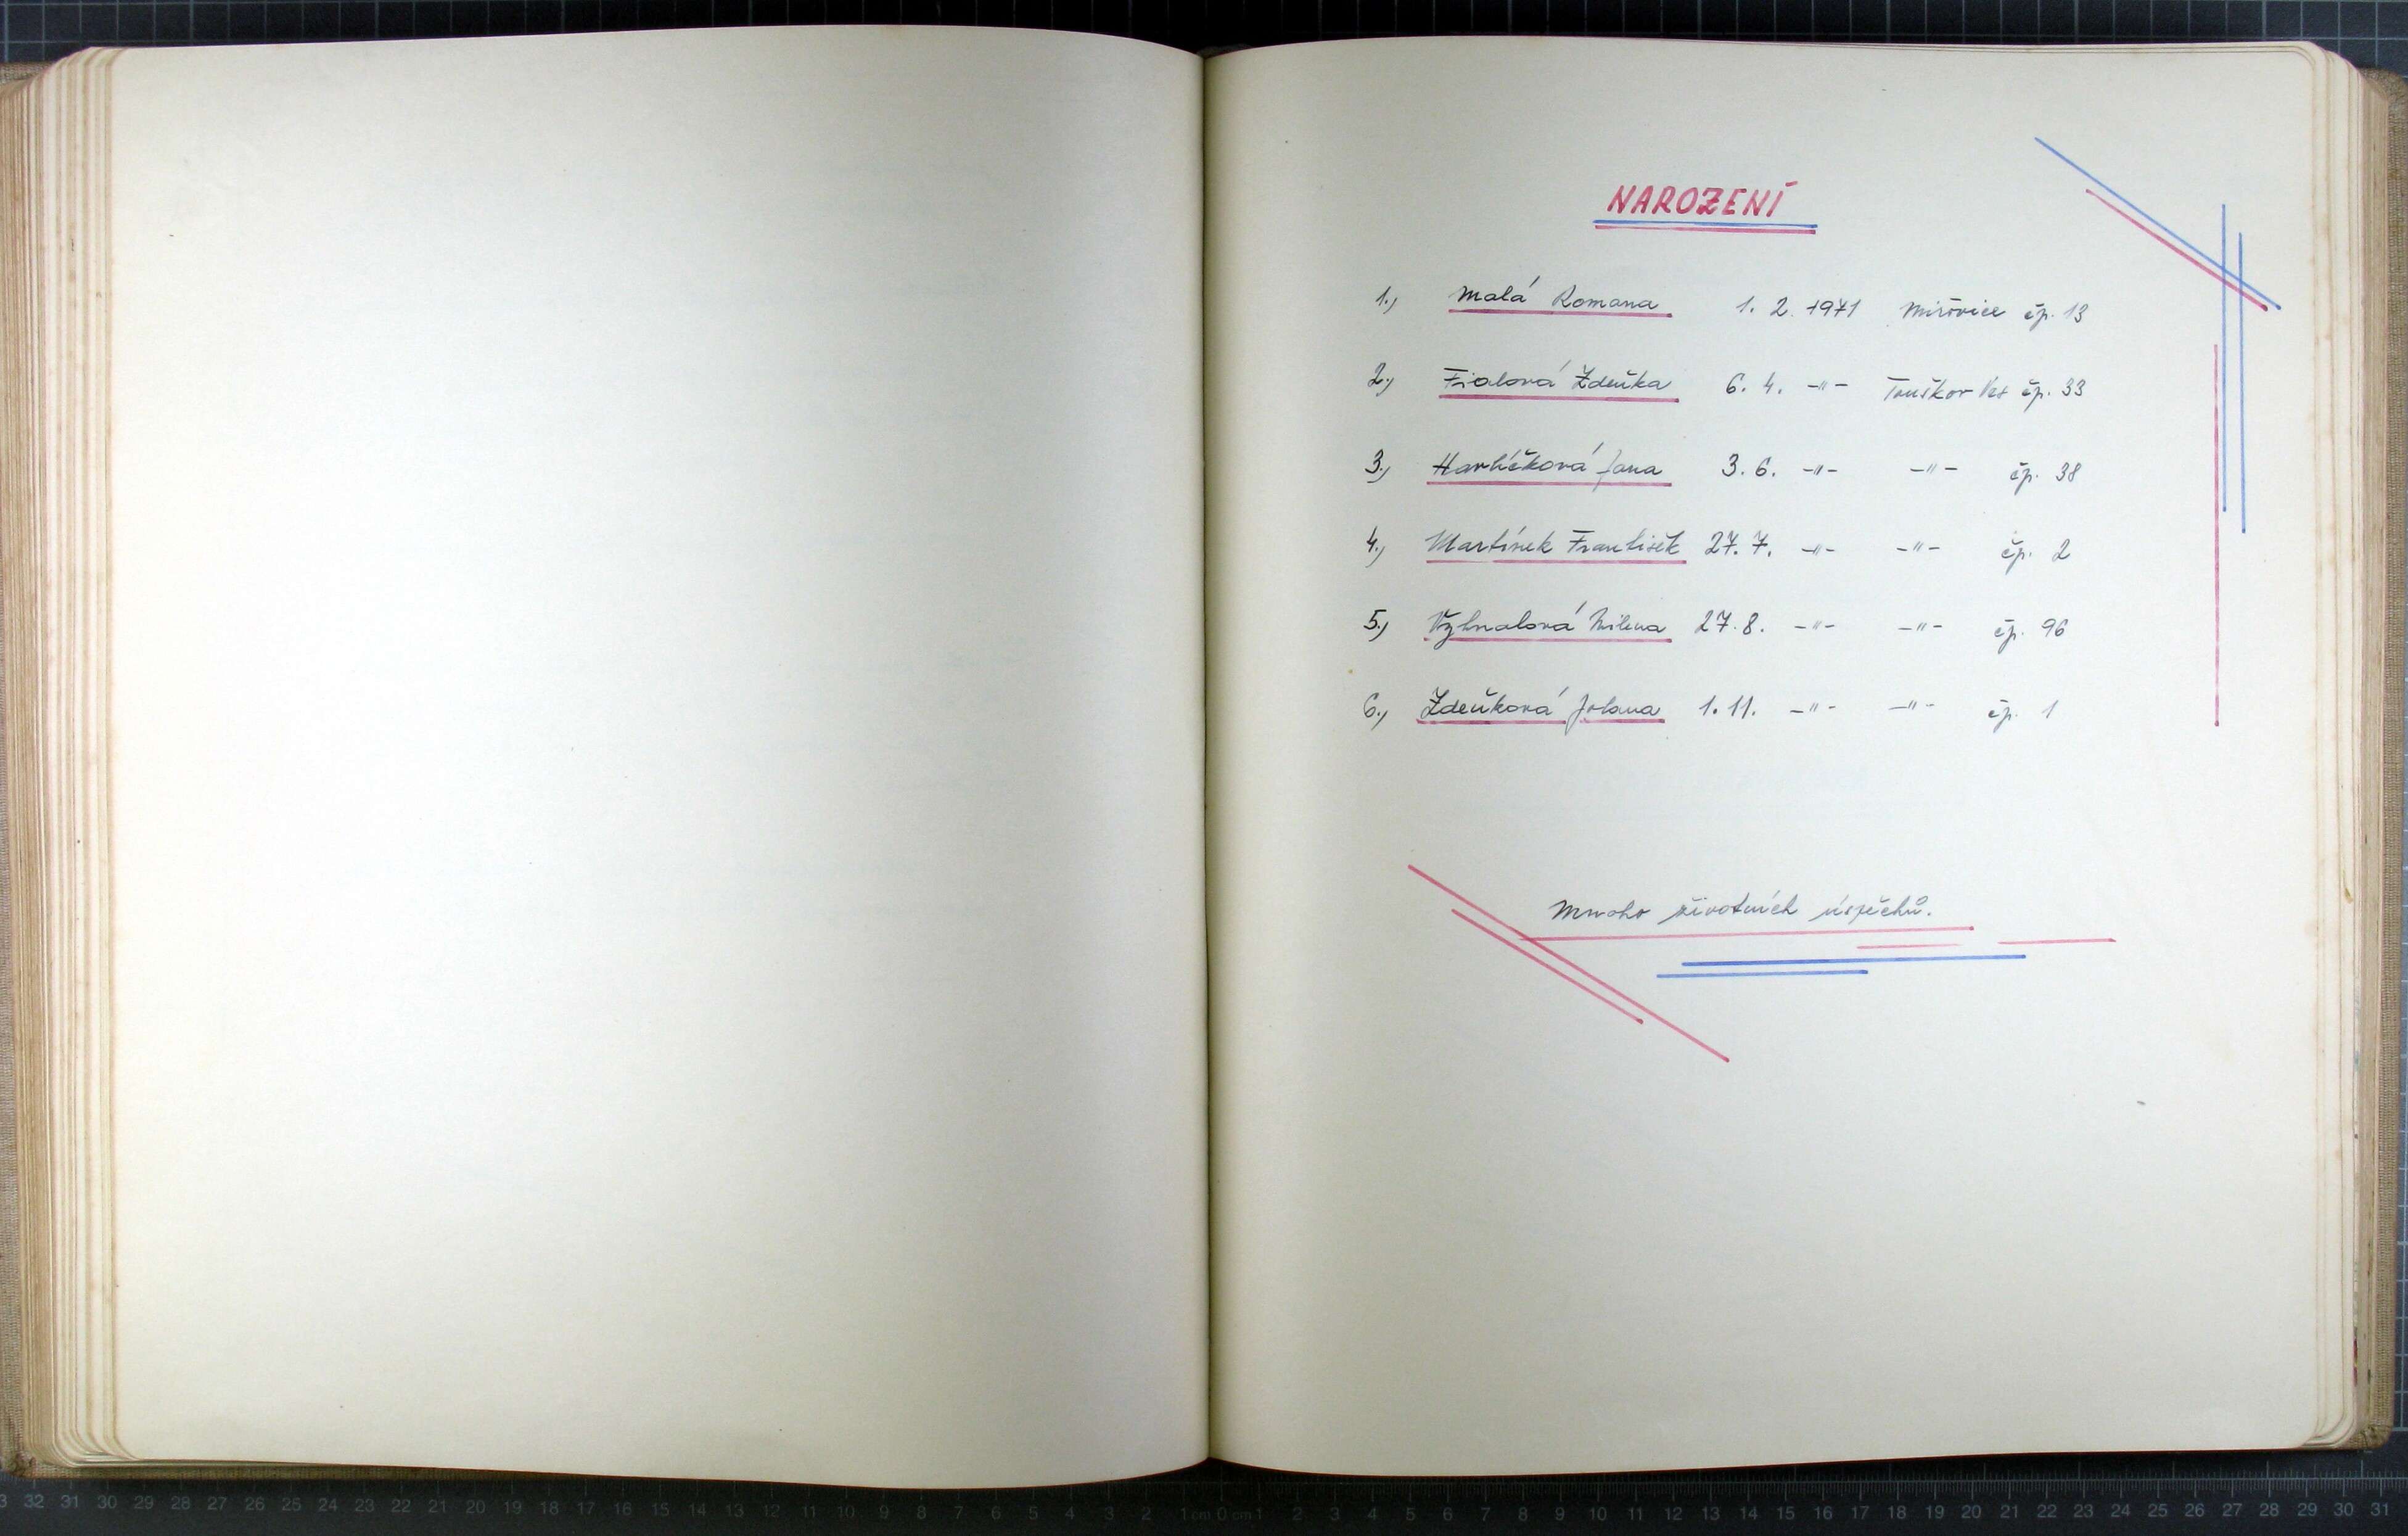 NAROZENÍ
1.) Malá Romana 1. 2. 1971 Mířovice čp. 13
2.) Fialová Zdeňka 6. 4. -"- Touškov Ves čp. 33
3.) Havlíčková Jana 3. 6. -"- -"- čp. 38
4.) Martínek František 27. 7. -"- -"- čp. 2
5.) Vyhnalová Milena 27. 8. -"- -"- čp. 96
6.) Zdeňková Jolana 1. 11. -"- -"- čp. 1
Mnoho životních úspěchů.
3 32 31 30 29 28 27 26 25 24 23 22 21 20 19 18 17 16 15 14 13 12 11 10 9 8 7 6 5 4 3 2 1 cm 0 cm 1 2 3 4 5 6 7 8 9 10 11 12 13 14 15 16 17 18 19 20 21 22 23 24 25 26 27 28 29 30 31